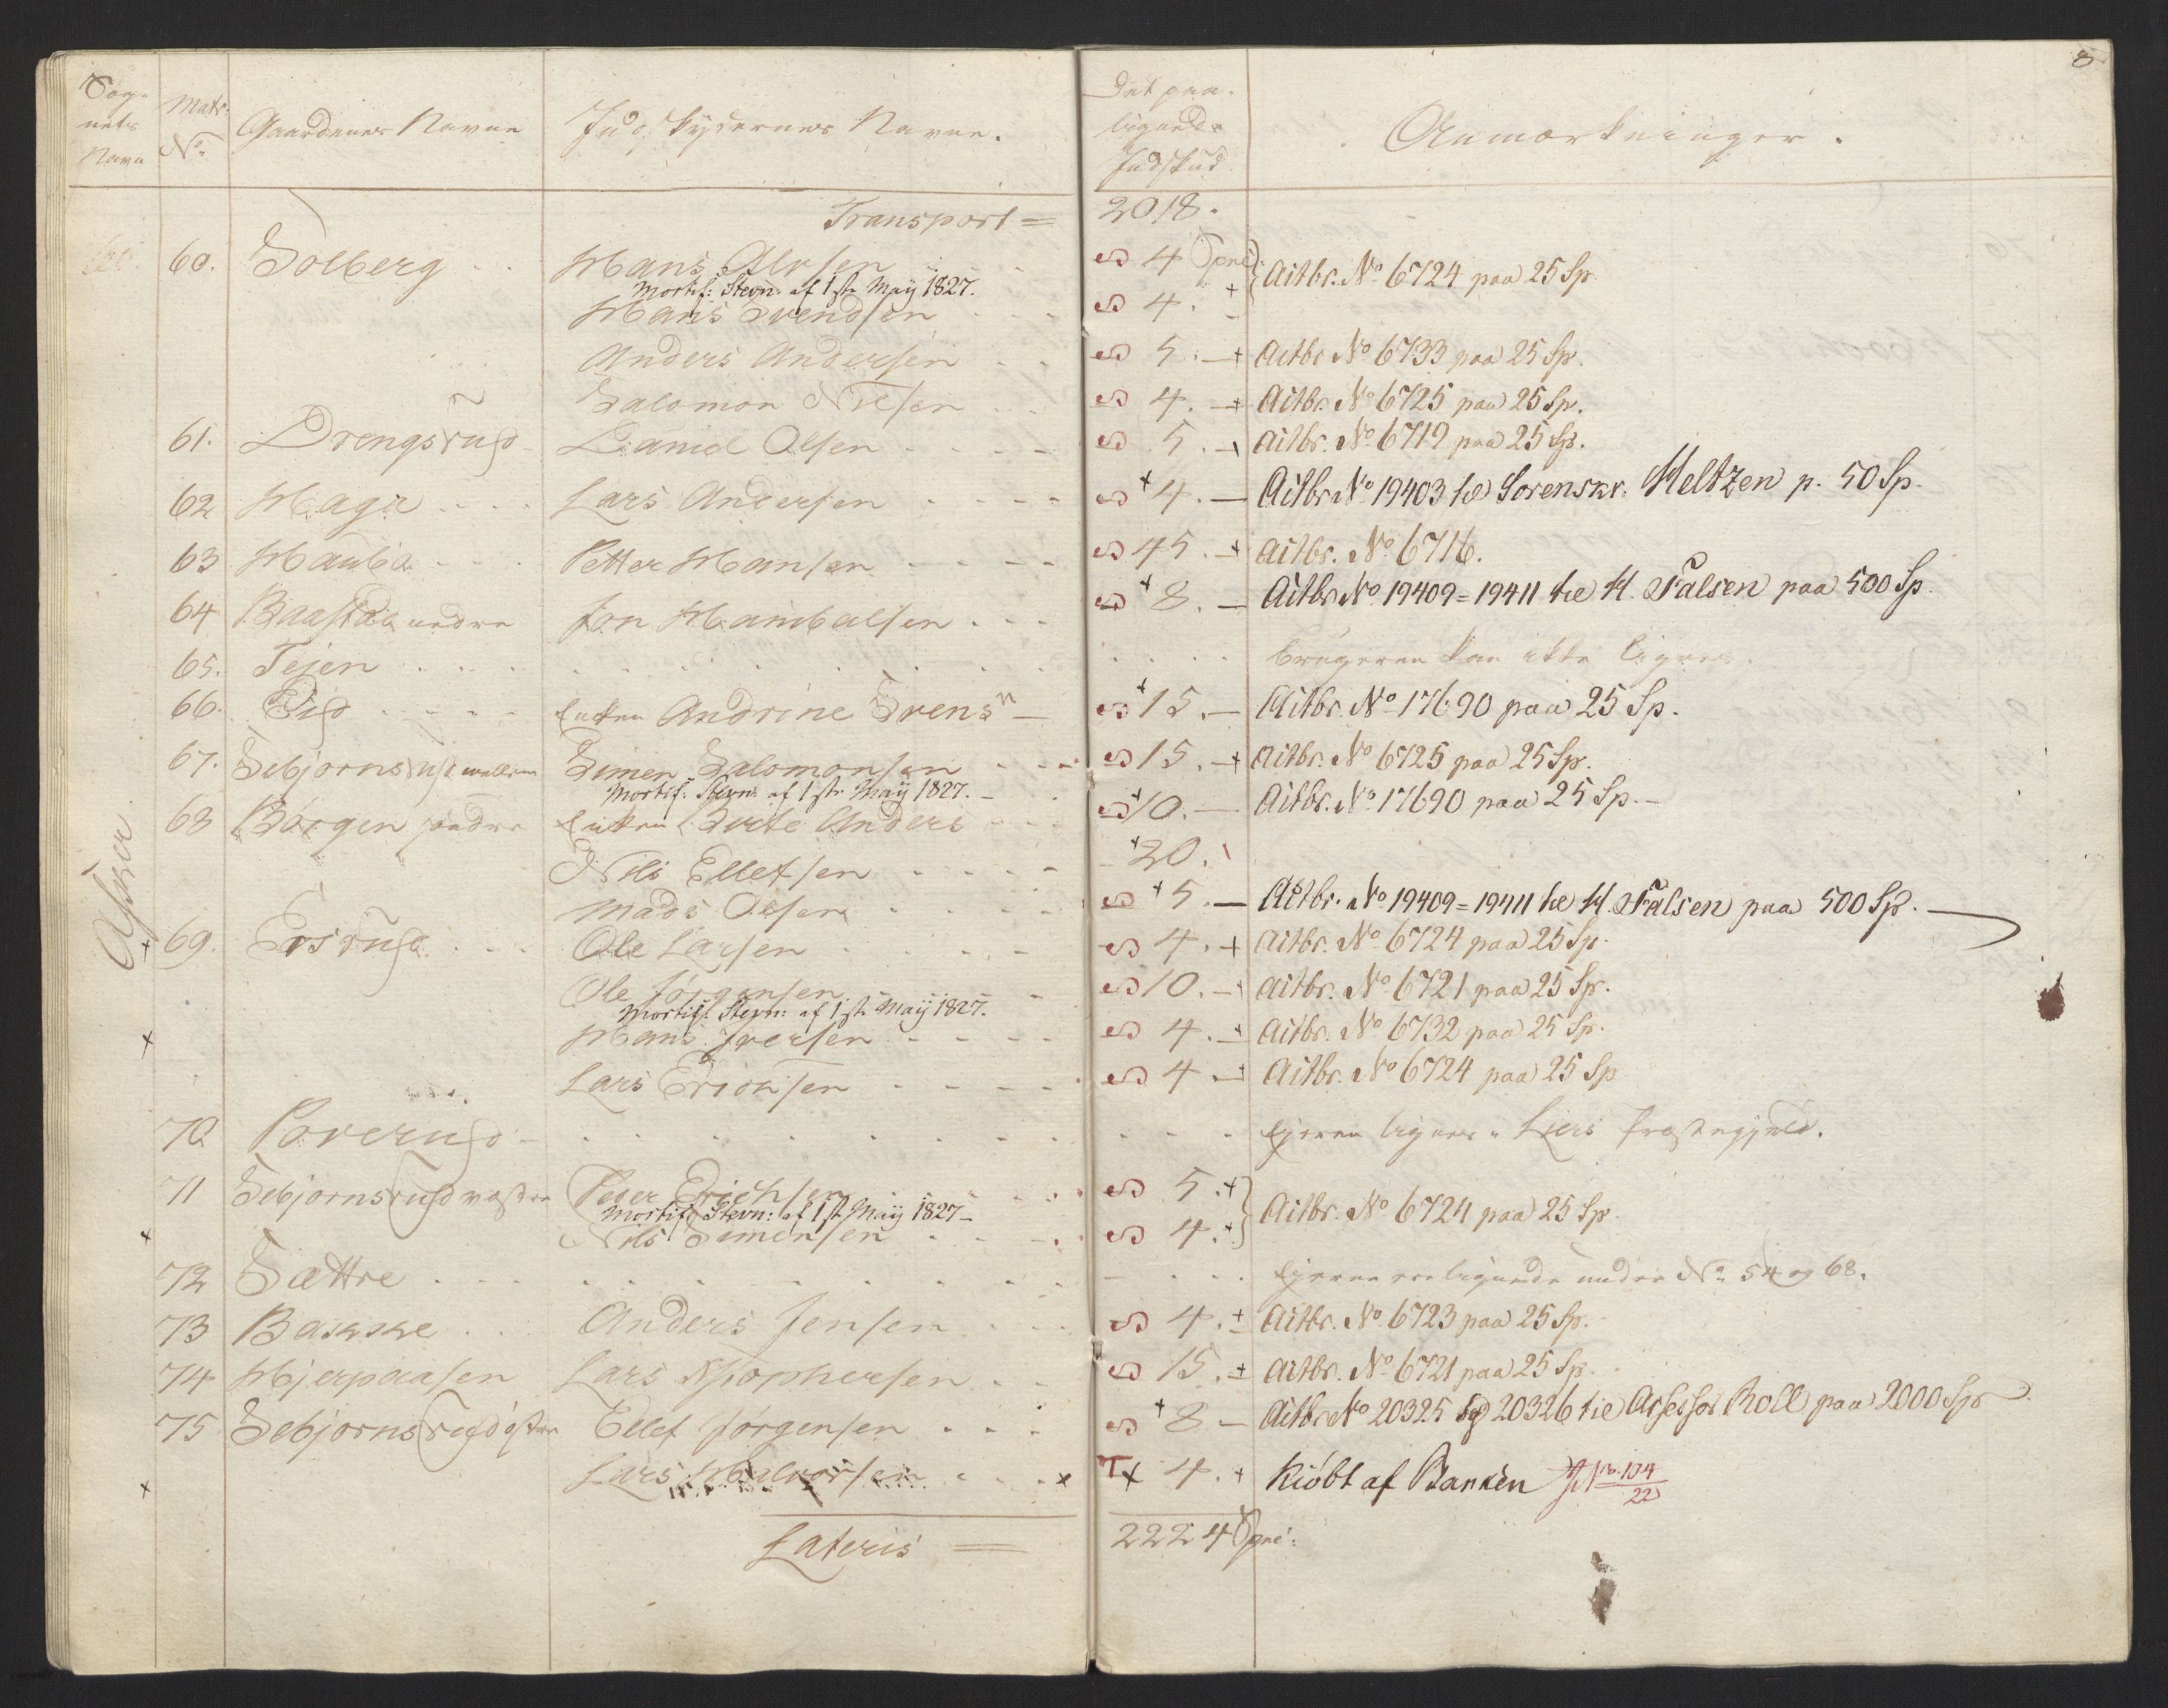 8
Sog-
nets
Navn
Matr.
No.
Gaardenes Navne
Indskydernes Navne.
Det paa-
lignede
Indskud
Anmærkninger.
Transport = 2018.
60. Solberg Hans Alvsen 4 Spd. Actbr. No 6724 paa 25 Sp.
Mortif: Stevn: af 1ste May 1827.
Hans Svendsen 4. +
Anders Andersen 5. + Actbr No 6733 paa 25 Sp.
Salomon Nilsen 4. + Actbr. No 6725 paa 25 Sp.
61. Drengsrud Daniel Olsen 5. + Actbr. No 6719 paa 25 Sp.
62 Haga Lars Andersen + 4. Actbr No 19403 til Sorenskr. Meltzen p. 50 Sp.
63 Hauba Petter Hansen 45. + Actbr. No 6716.
64 Baastad nedre Jon Hambalsen + 8. Actbr No 19409 = 19411 til H. Falsen paa 500 Sp.
65. Tejen Brugeren kan ikke lignes.
66. Eid Enken Andrine Svensn + 15. Actbr. No 17690 paa 25 Sp.
67. Sebjørnsrud mellem Simen Salomonsen 15. + Actbr. No 6725 paa 25 Sp.
Mortif: Stevn: af 1ste May 1827.
68 Børgen søndre Enken Berte Anders + 10. Actbr. No 17690 paa 25 Sp.
Nils Ellefsen + 20.
Mads Olsen + 5. Actbr. No 19409 = 19411 til H. Falsen paa 500 Sp.
Asker
+ 69. Ersrud Ole Larsen 4. + Actbr. No 6724 paa 25 Sp.
Ole Jørgensen 10. Actbr. No 6721 paa 25 Sp.
Mortif: Stevn: af 1ste May 1827.
+ Hans Iversen 4. + Actbr. No 6732 paa 25 Sp.
Lars Erichsen 4. + Actbr. No 6724 paa 25 Sp
70 Poverud Ejeren lignes i Liers Præstegjeld.
71 Sebjørnsrud vestre Peder Erichsen 5. + Actbr. No 6724 paa 25 Sp.
Mortif: Stevn: af 1ste May 1827
+ Nils Simensen 4. +
72 Sættre Ejerne ere lignede under No 54 og 68.
73 Baskske Anders Jensen 4. + Actbr. No 6723 paa 25 Sp.
74 Hjerpaasen Lars Kristophersen 15. + Actbr. No 6721 paa 25 Sp.
75 Sebjørnsrud østre Ellef Jørgensen + 8 Actbr No 20325 og 20326 til Assessor Roll paa 2000 Sp
+ Lars Halvorsen + 4. + Kiøbt af Banken 104
22
Lateris = 2224 Spd: